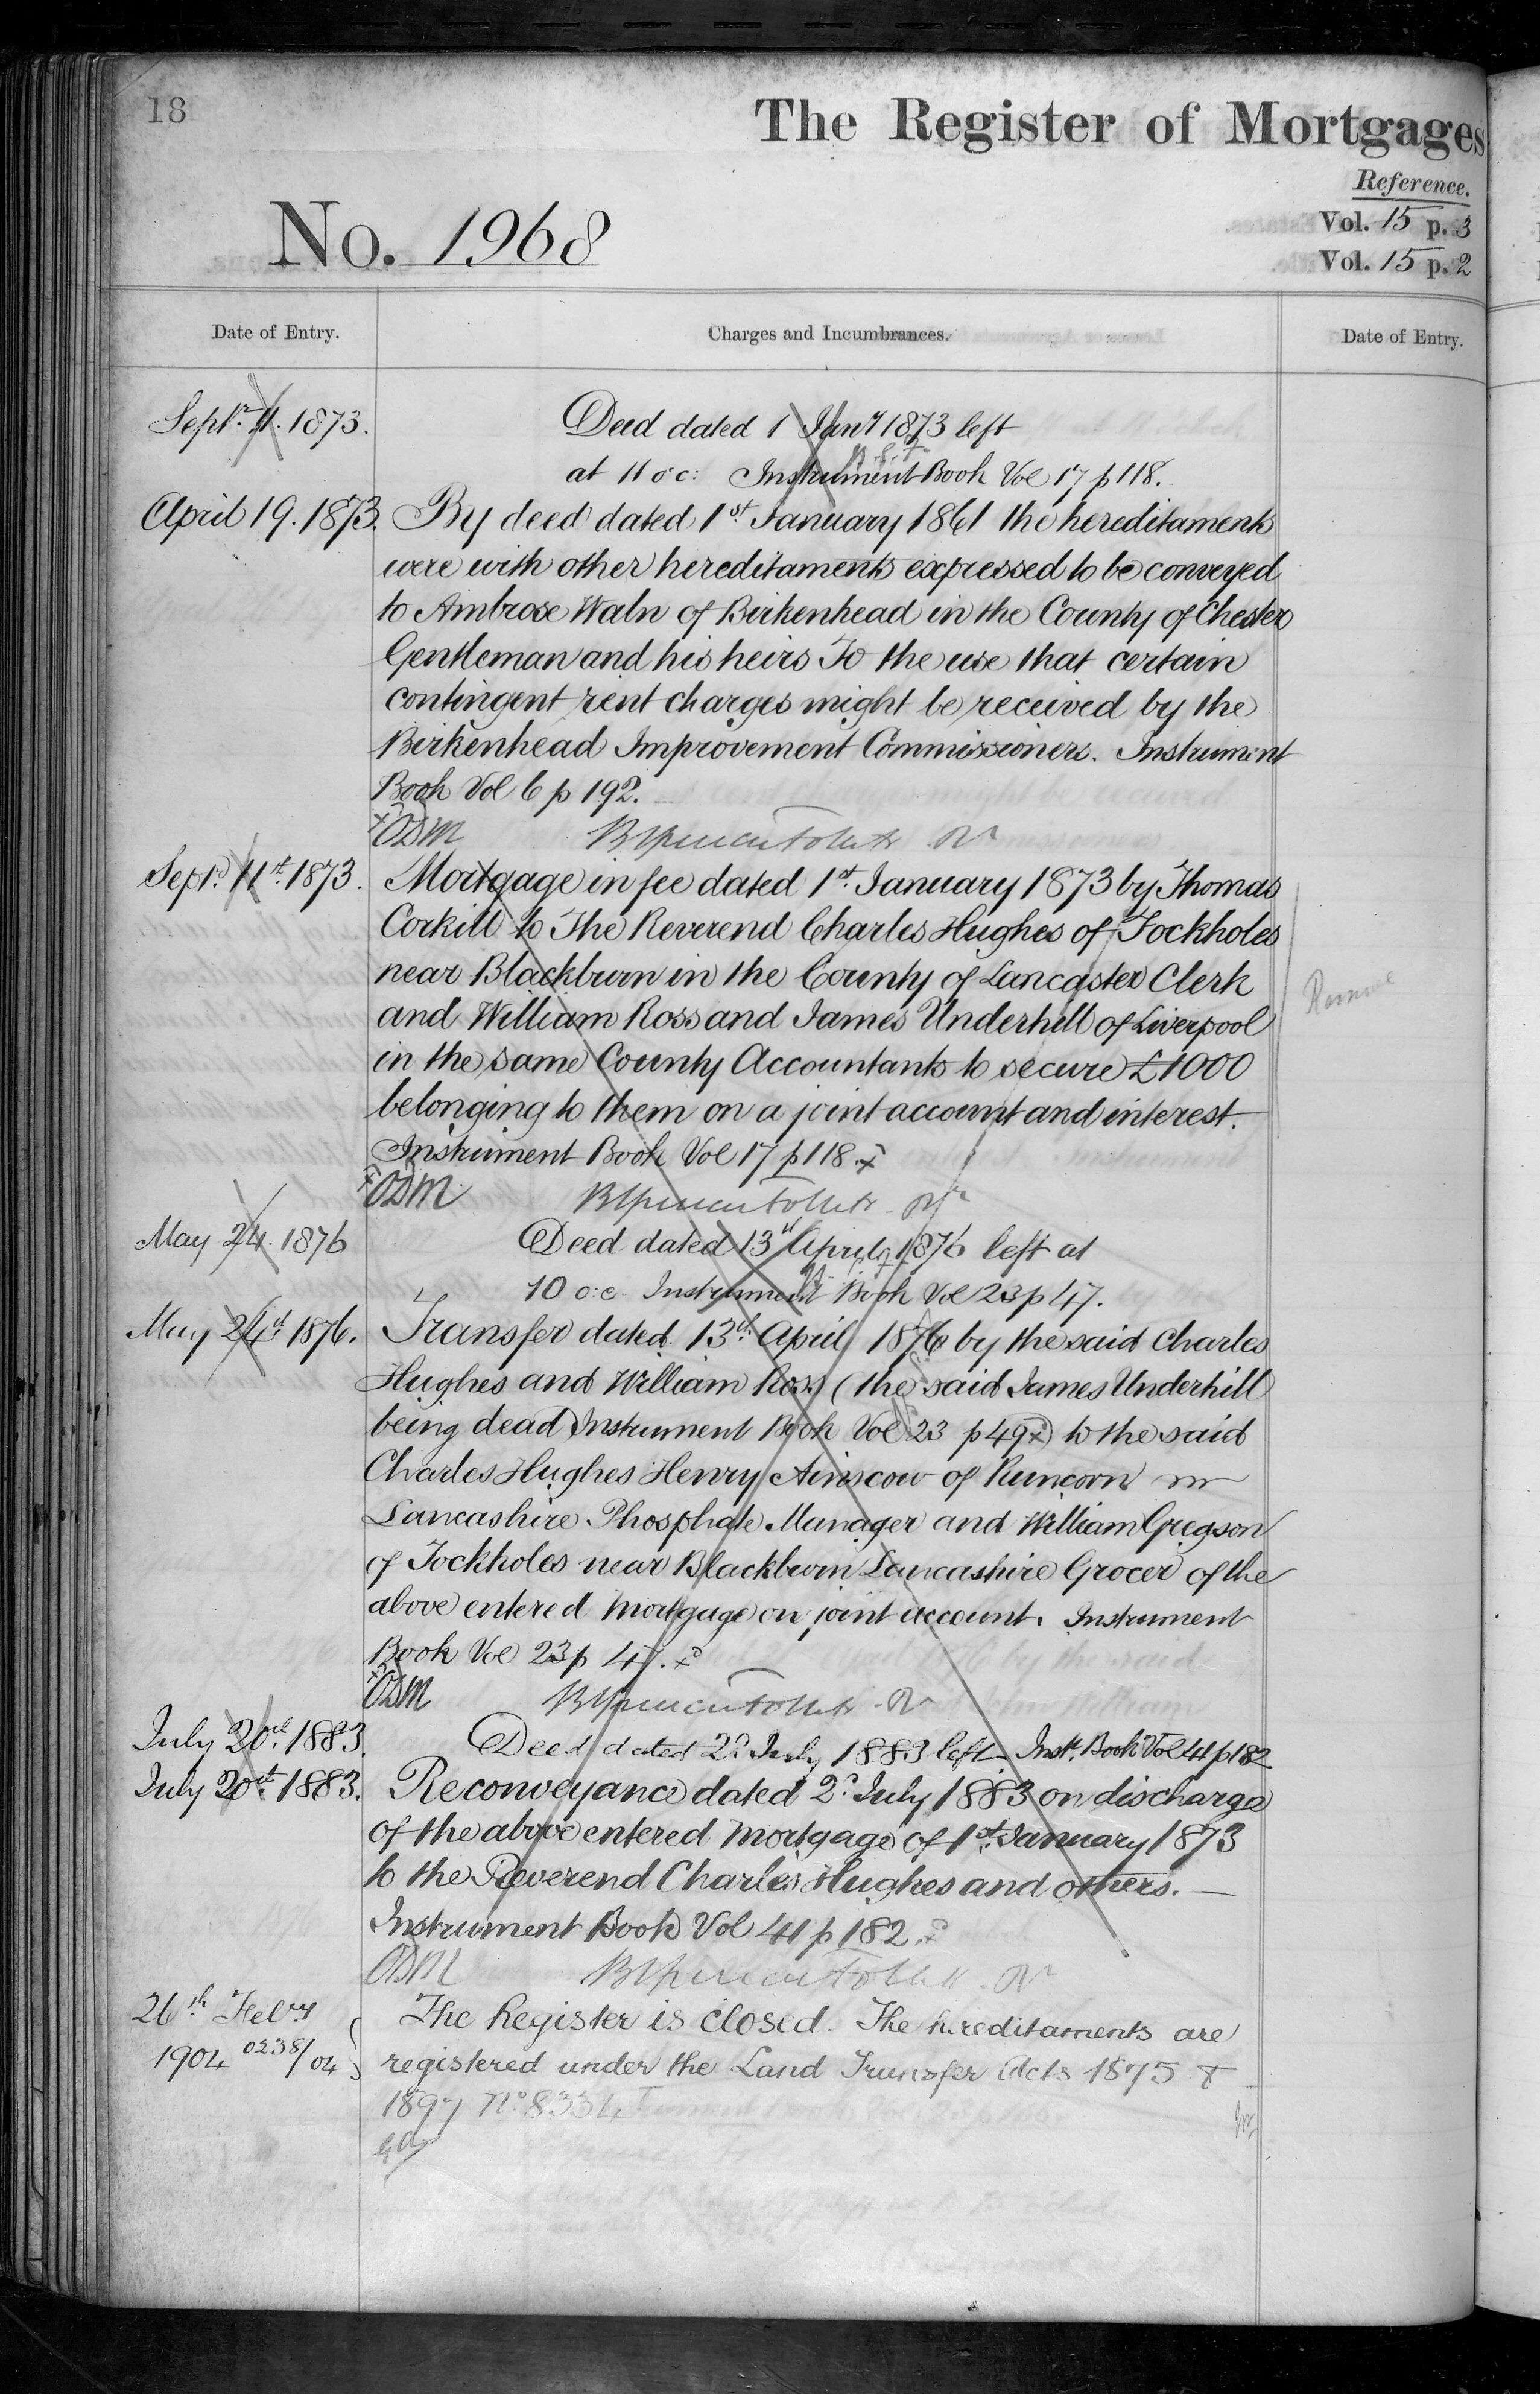 18
The Register of Mortgages
Reference.
Vol. 15 p. 3
Vol. 15 p. 2
No. 1968
Date of Entry.
Charges and Incumbrances.
Date of Entry.
Septr. 11. 1873.
Deed dated 1 Jany 1873 left
at 11 o'c: Instrument Book Vol 17 p 118.
April 19. 1873.
By deed dated 1st January 1861 the hereditaments
were with other hereditaments expressed to be conveyed
to Ambrose Waln of Birkenhead in the County of Chester
Gentleman and his heirs To the use that certain
contingent rent charges might be received by the
Birkenhead Improvement Commissioners. Instrument
Book Vol 6 p 192.
ODM
Sept. 11th. 1873.
Mortgage in fee dated 1st. January 1873 by Thomas
Corkill to The Reverend Charles Hughes of Tockholes
near Blackburn in the County of Lancaster Clerk
and William Ross and James Underhill of Liverpool
in the same County Accountants to secure £1000
belonging to them on a joint account and interest.
Instrument Book Vol 17 p 118.
ODM
May 24. 1876
Deed dated 13th April 1876 left at
10 o:c Instrument Book Vol 23 p 47.
May 24th 1876.
Transfer dated 13th April 1876 by the said Charles
Hughes and William Ross (the said James Underhill
being dead Instrument Book Vol 23 p 49) to the said
Charles Hughes Henry Ainscow of Runcorn in
Lancashire Phosphate Manager and William Gregson
of Tockholes near Blackburn Lancashire Grocer of the
above entered Mortgage on joint account. Instrument
Book Vol 23 p 47.
ODM
July 20th. 1883.
Deed dated 2d July 1883 left Inst. Book Vol 41 p 182
July 20th 1883.
Reconveyance dated 2d July 1883 on discharge
of the above entered Mortgage of 1st January 1873
to the Reverend Charles Hughes and others.
Instrument Book Vol 41 p 182
ODM
26th Febry
The Register is closed. The hereditaments are
1904 0238/04
registered under the Land Transfer Acts 1875 &
1897 No 8334